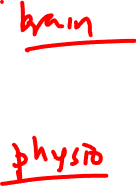 brain
physio